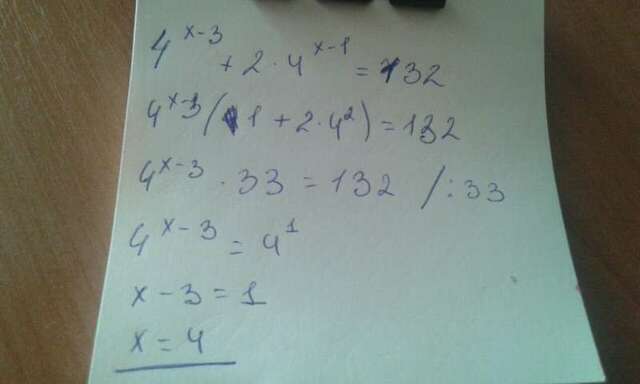 4^{x-3} + 2 · 4^{x-1} = 132
4^{x-3} (1 + 2 · 4^2) = 132
4^{x-3} · 33 = 132 / : 33
4^{x-3} = 4^1
x - 3 = 1
x = 4